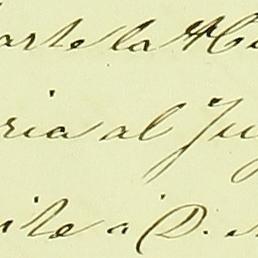 arte la
ria al Ju
ite a D.